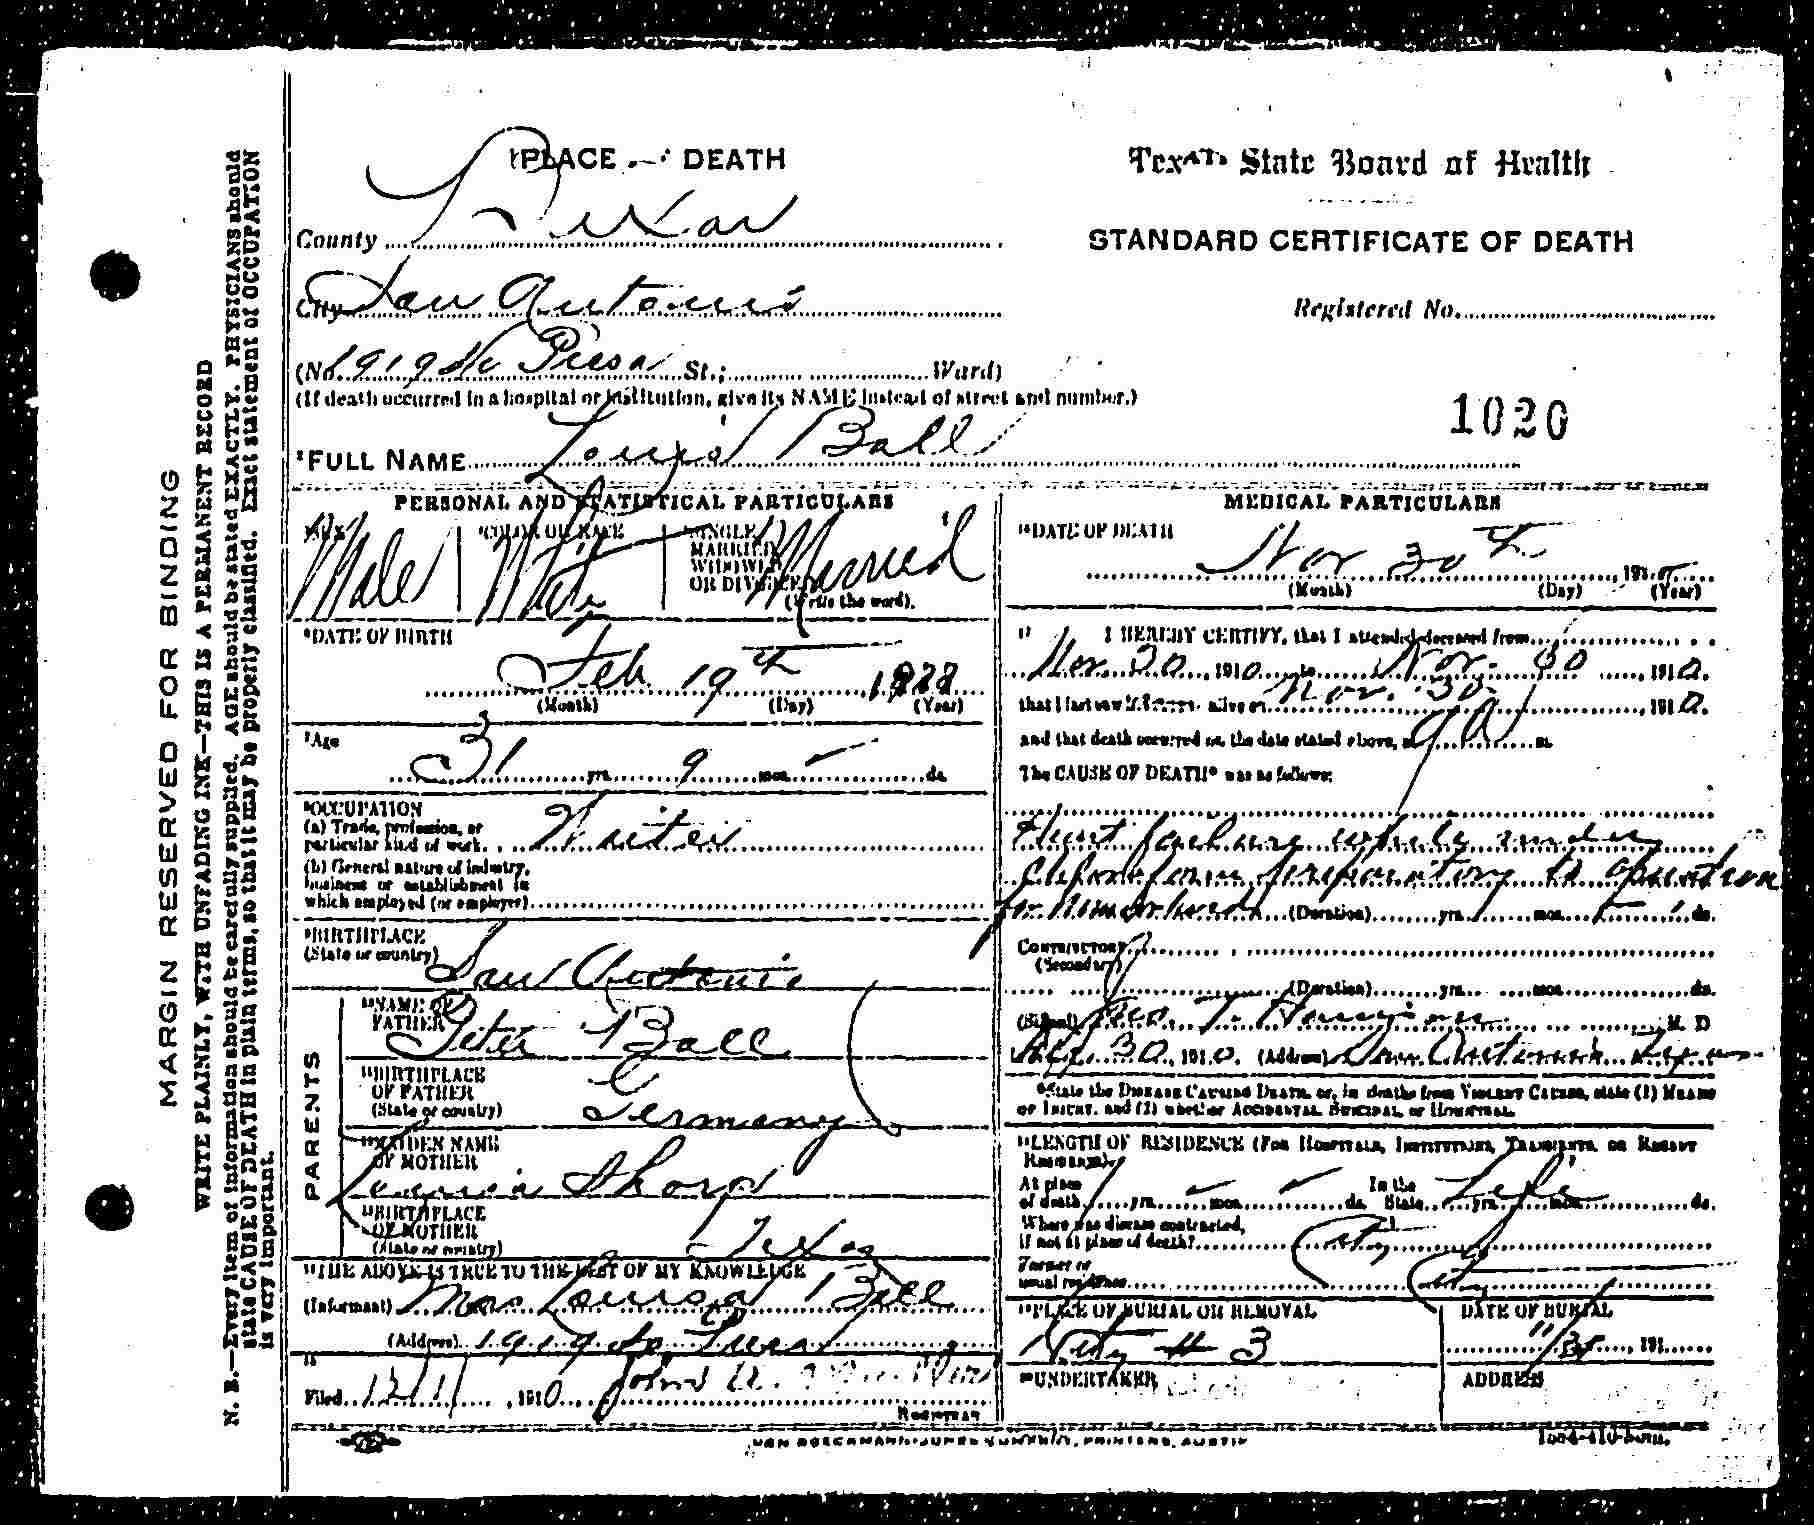 PLACE DEATH
Texas State Board of Health
STANDARD CERTIFICATE OF DEATH
County Bexar
City San Antonio
Registered No.
(No. 1919 So Presa St.; Ward)
(If death occurred in a hospital or institution, give its NAME instead of street and number.)
1020
FULL NAME Louis Ball
PERSONAL AND STATISTICAL PARTICULARS
SEX Male
COLOR OR RACE White
SINGLE MARRIED WIDOWED OR DIVORCED Married
(Write the word).
DATE OF BIRTH
Feb 19th
(Month) (Day) (Year)
Age
31 yrs. 9 mos. ds.
OCCUPATION
(a) Trade, profession, or
particular kind of work
(b) General nature of industry,
business or establishment in
which employed (or employer)
BIRTHPLACE
(State or country)
San Antonio
PARENTS
NAME OF
FATHER Peter Ball
BIRTHPLACE
OF FATHER
(State or country) Germany
MAIDEN NAME
OF MOTHER
Louisa Thorp
BIRTHPLACE
OF MOTHER
(State or country) Texas
THE ABOVE IS TRUE TO THE BEST OF MY KNOWLEDGE
(Informant) Mrs Louisa Ball
(Address) 1919 So Presa
Filed 12/1, 1910
REGISTRAR
MEDICAL PARTICULARS
DATE OF DEATH
Nov 30th
(Month) (Day) (Year)
I HEREBY CERTIFY, that I attended deceased from
Nov. 30, 1910, to Nov. 30, 1910,
that I last saw alive on Nov. 30, 1910.
and that death occurred on the date stated above, at 9 A m.
The CAUSE OF DEATH* was as follows:
Heart failure while under
chloroform preparatory to operation
for hemorrhoids (Duration) yrs. mos. ds.
CONTRIBUTORY
(Secondary)
(Duration) yrs. mos. ds.
(Signed) M. D
30, 1910. (Address) San Antonio Texas
*State the DISEASE CAUSING DEATH, or, in deaths from VIOLENT CAUSES, state (1) MEANS
OF INJURY, and (2) whether ACCIDENTAL, SUICIDAL, or HOMICIDAL.
LENGTH OF RESIDENCE (FOR HOSPITALS, INSTITUTIONS, TRANSIENTS, OR RECENT
RESIDENTS).
At place
of death yrs. mos. ds. In the State Life yrs. mos. ds.
Where was disease contracted,
if not at place of death? City
Former or
usual residence City
PLACE OF BURIAL OR REMOVAL
City # 3
DATE OF BURIAL
191
UNDERTAKER
ADDRESS
VON BOECKMANN-JONES COMPANY, PRINTERS, AUSTIN
MARGIN RESERVED FOR BINDING
WRITE PLAINLY, WITH UNFADING INK—THIS IS A PERMANENT RECORD
N. B.—Every item of information should be carefully supplied. AGE should be stated EXACTLY. PHYSICIANS should
state CAUSE OF DEATH in plain terms, so that it may be properly classified. Exact statement of OCCUPATION
is very important.